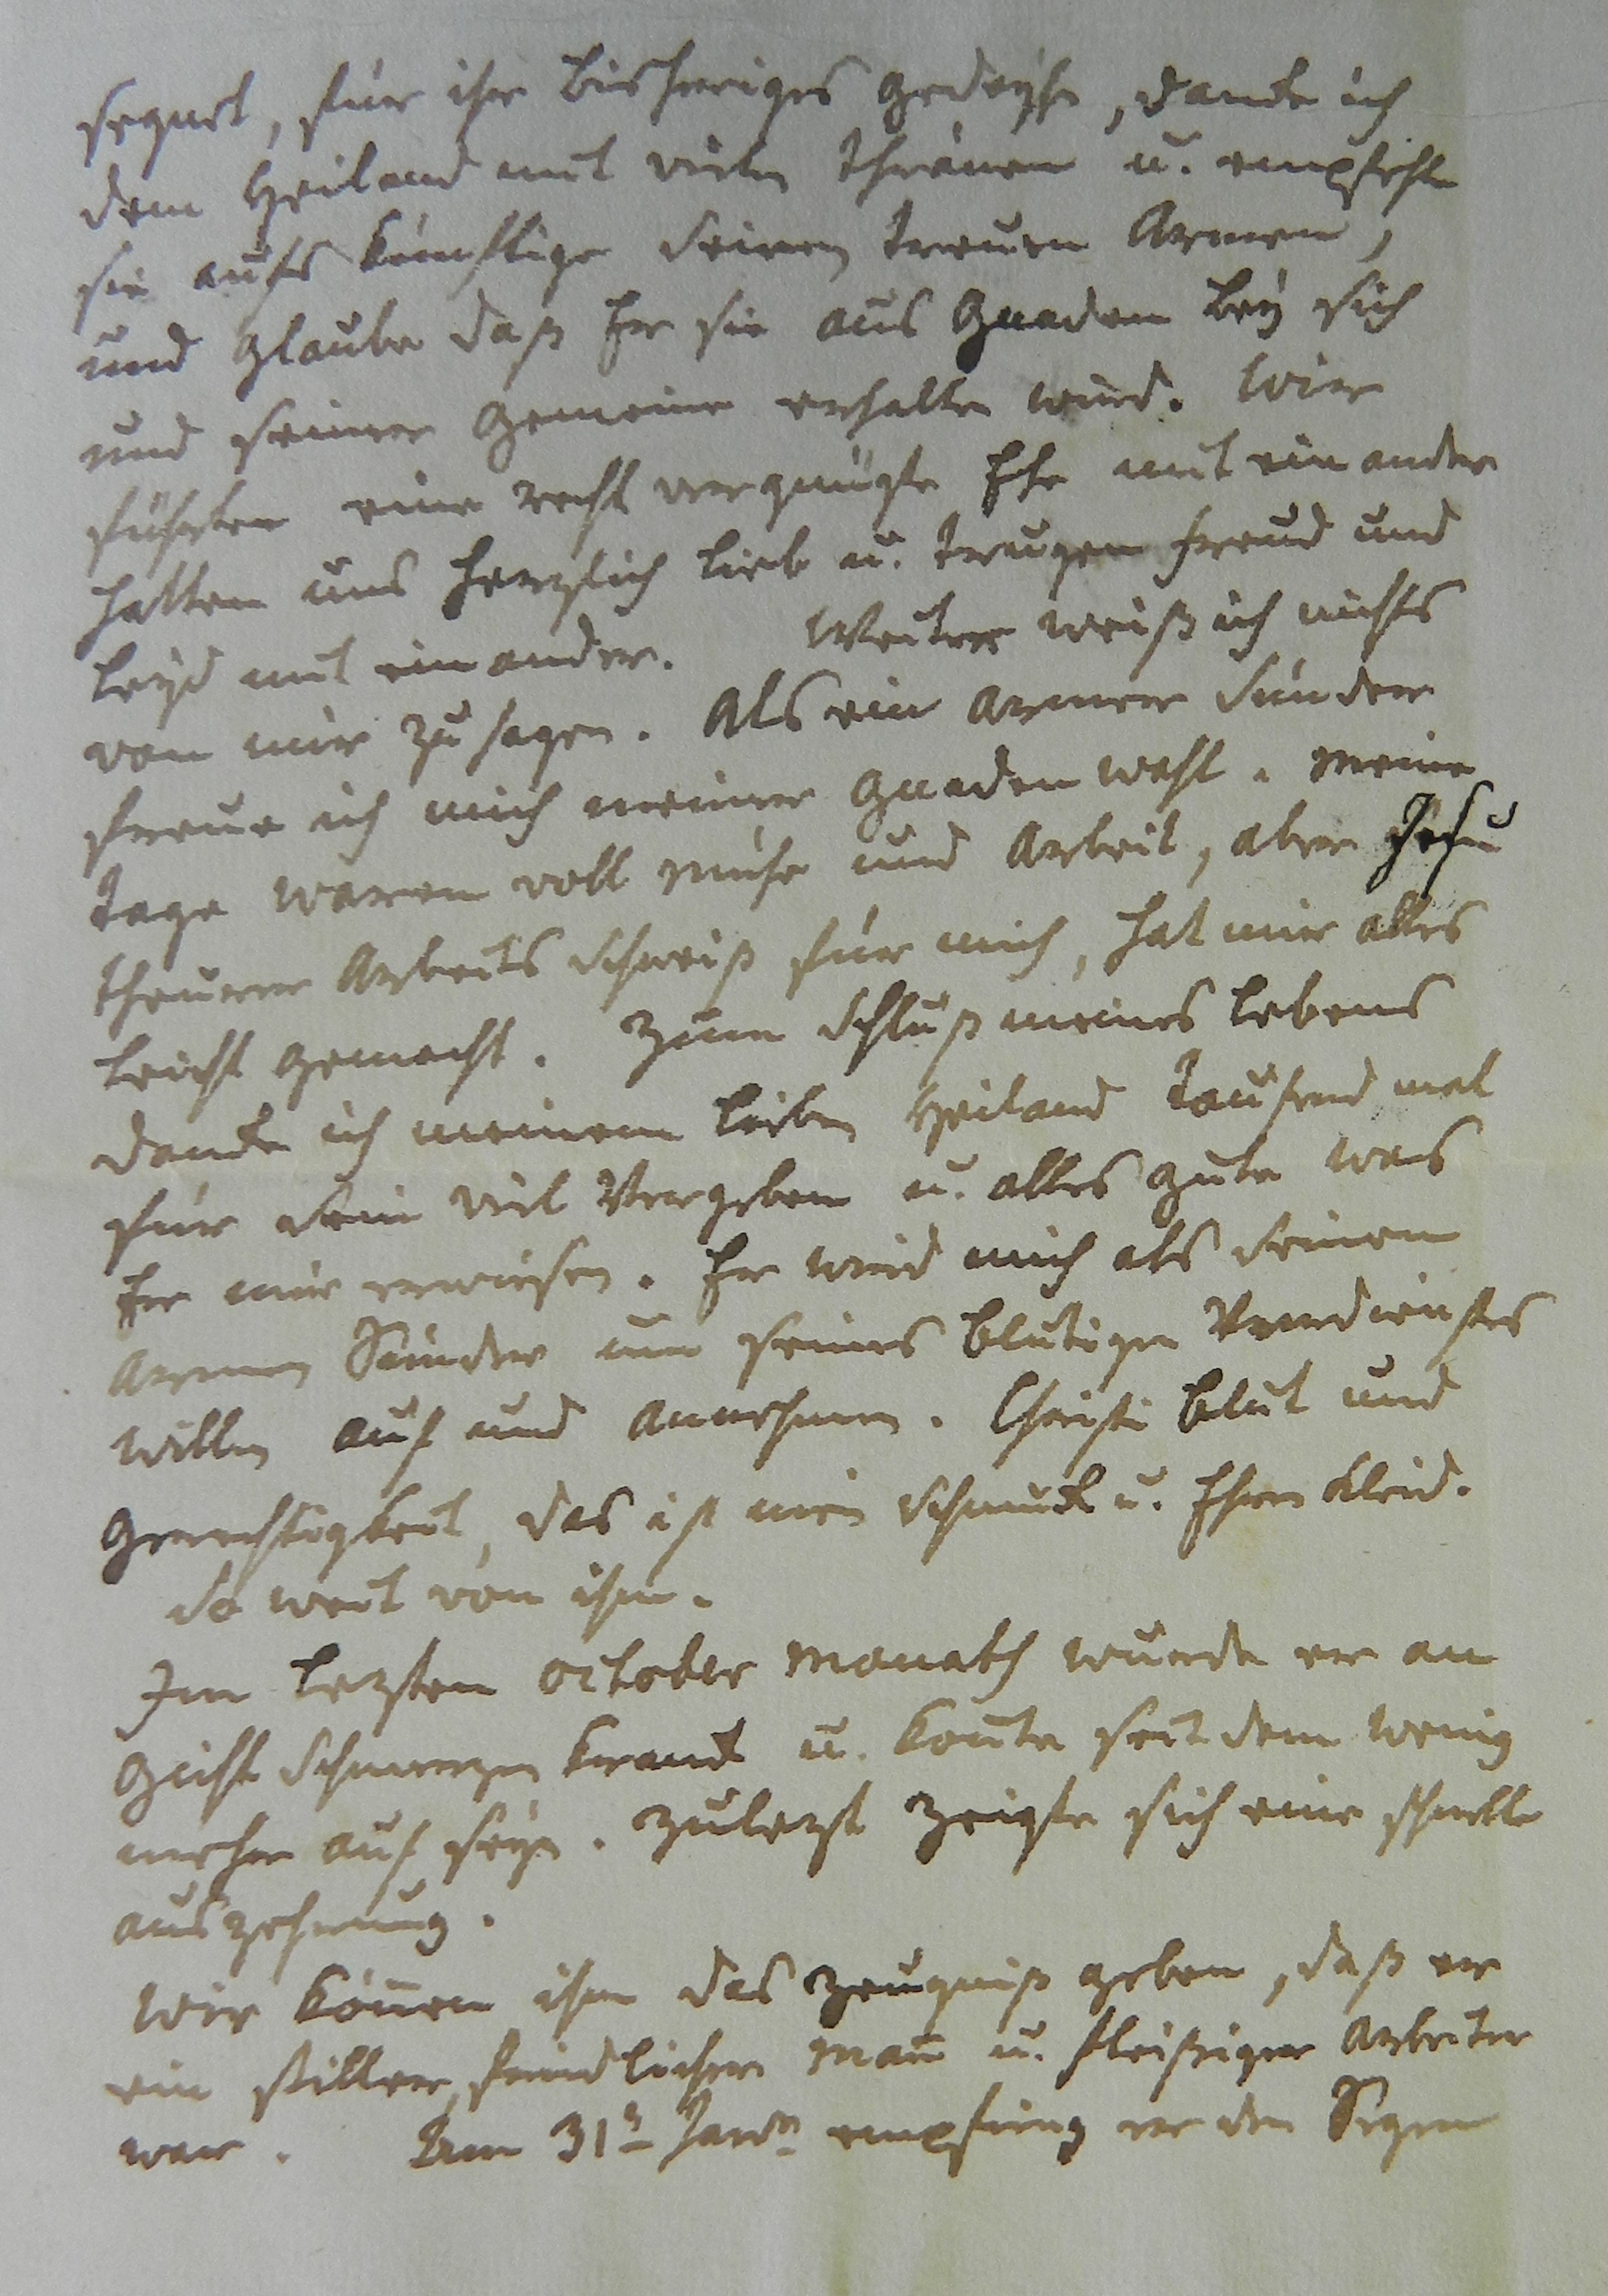 segnet, für ihr bisheriges Gedeyhn, dancke ich
dem Heiland mit vielen Thränen u. empfehle
sie aufs künftige seinen treuen Armen,
und glaube daß Er sie aus Gnaden bey sich
und seiner Gemeine erhalten wird. Wir
führten eine recht vergnügte Ehe mit einander
hatten uns herzlich lieb u. trugen Freud und
Leyd mit einander. Weiter weiß ich nichts
von mir zu sagen. Als ein armer Sünder
freue ich mich meiner Gnaden wahl. Meine
Tage waren voll Mühe und Arbeit, aber Jesu
theurer Arbeits Schweiß für mich, hat mir alles
leicht gemacht. Zum Schluß meines Lebens
dancke ich meinem lieben Heiland Tausend mal
für sein viel Vergeben u. alles gute was
Er mir erwiesen. Er wird mich als seinen
armen Sünder um seines blutigen Verdienstes
willen auf und annehmen. Christi Blut und
Gerechtigkeit, das ist mein Schmuck u. Ehren Kleid.
So weit von ihm.
Im lezten October Monath wurde er an
Gicht Schmerzen kranck u. konte seit dem wenig
mehr auf seyn. Zulezt zeigte sich eine schnelle
auszehrung.
Wir köñen ihm das Zeugniß geben, daß er
ein stiller, freundlicher Mañ u. fleißiger Arbeiter
war. Am 31t Janr empfing er den Segen